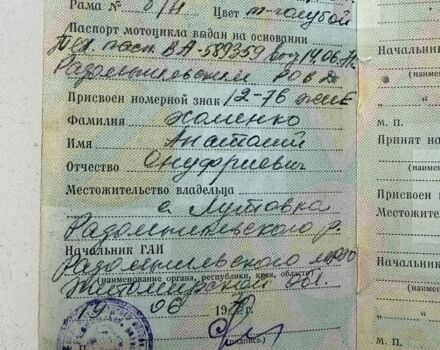 Рама № б/н Цвет т-голубой
Паспорт мотоцикла выдан на основании
Тех пасп. ВА-589359 от 14.06.
Радомышльским РОВД
Присвоен номерной знак 12-76 ЖИЕ
Фамилия Хоменко
Имя Анатолий
Отчество Онуфриевич
Местожительство владельца
с. Лутовка
Радомышльского р.
Начальник ГАИ
Радомышльского
(наименование органа, республики, края, области)
Житомирской обл.
19 06 19 г.
(подпись)
Начальник
(наименов
М. П.
Принят на
(наимен
Присвоен н
Местожите
Начальник
(наи
М. П.